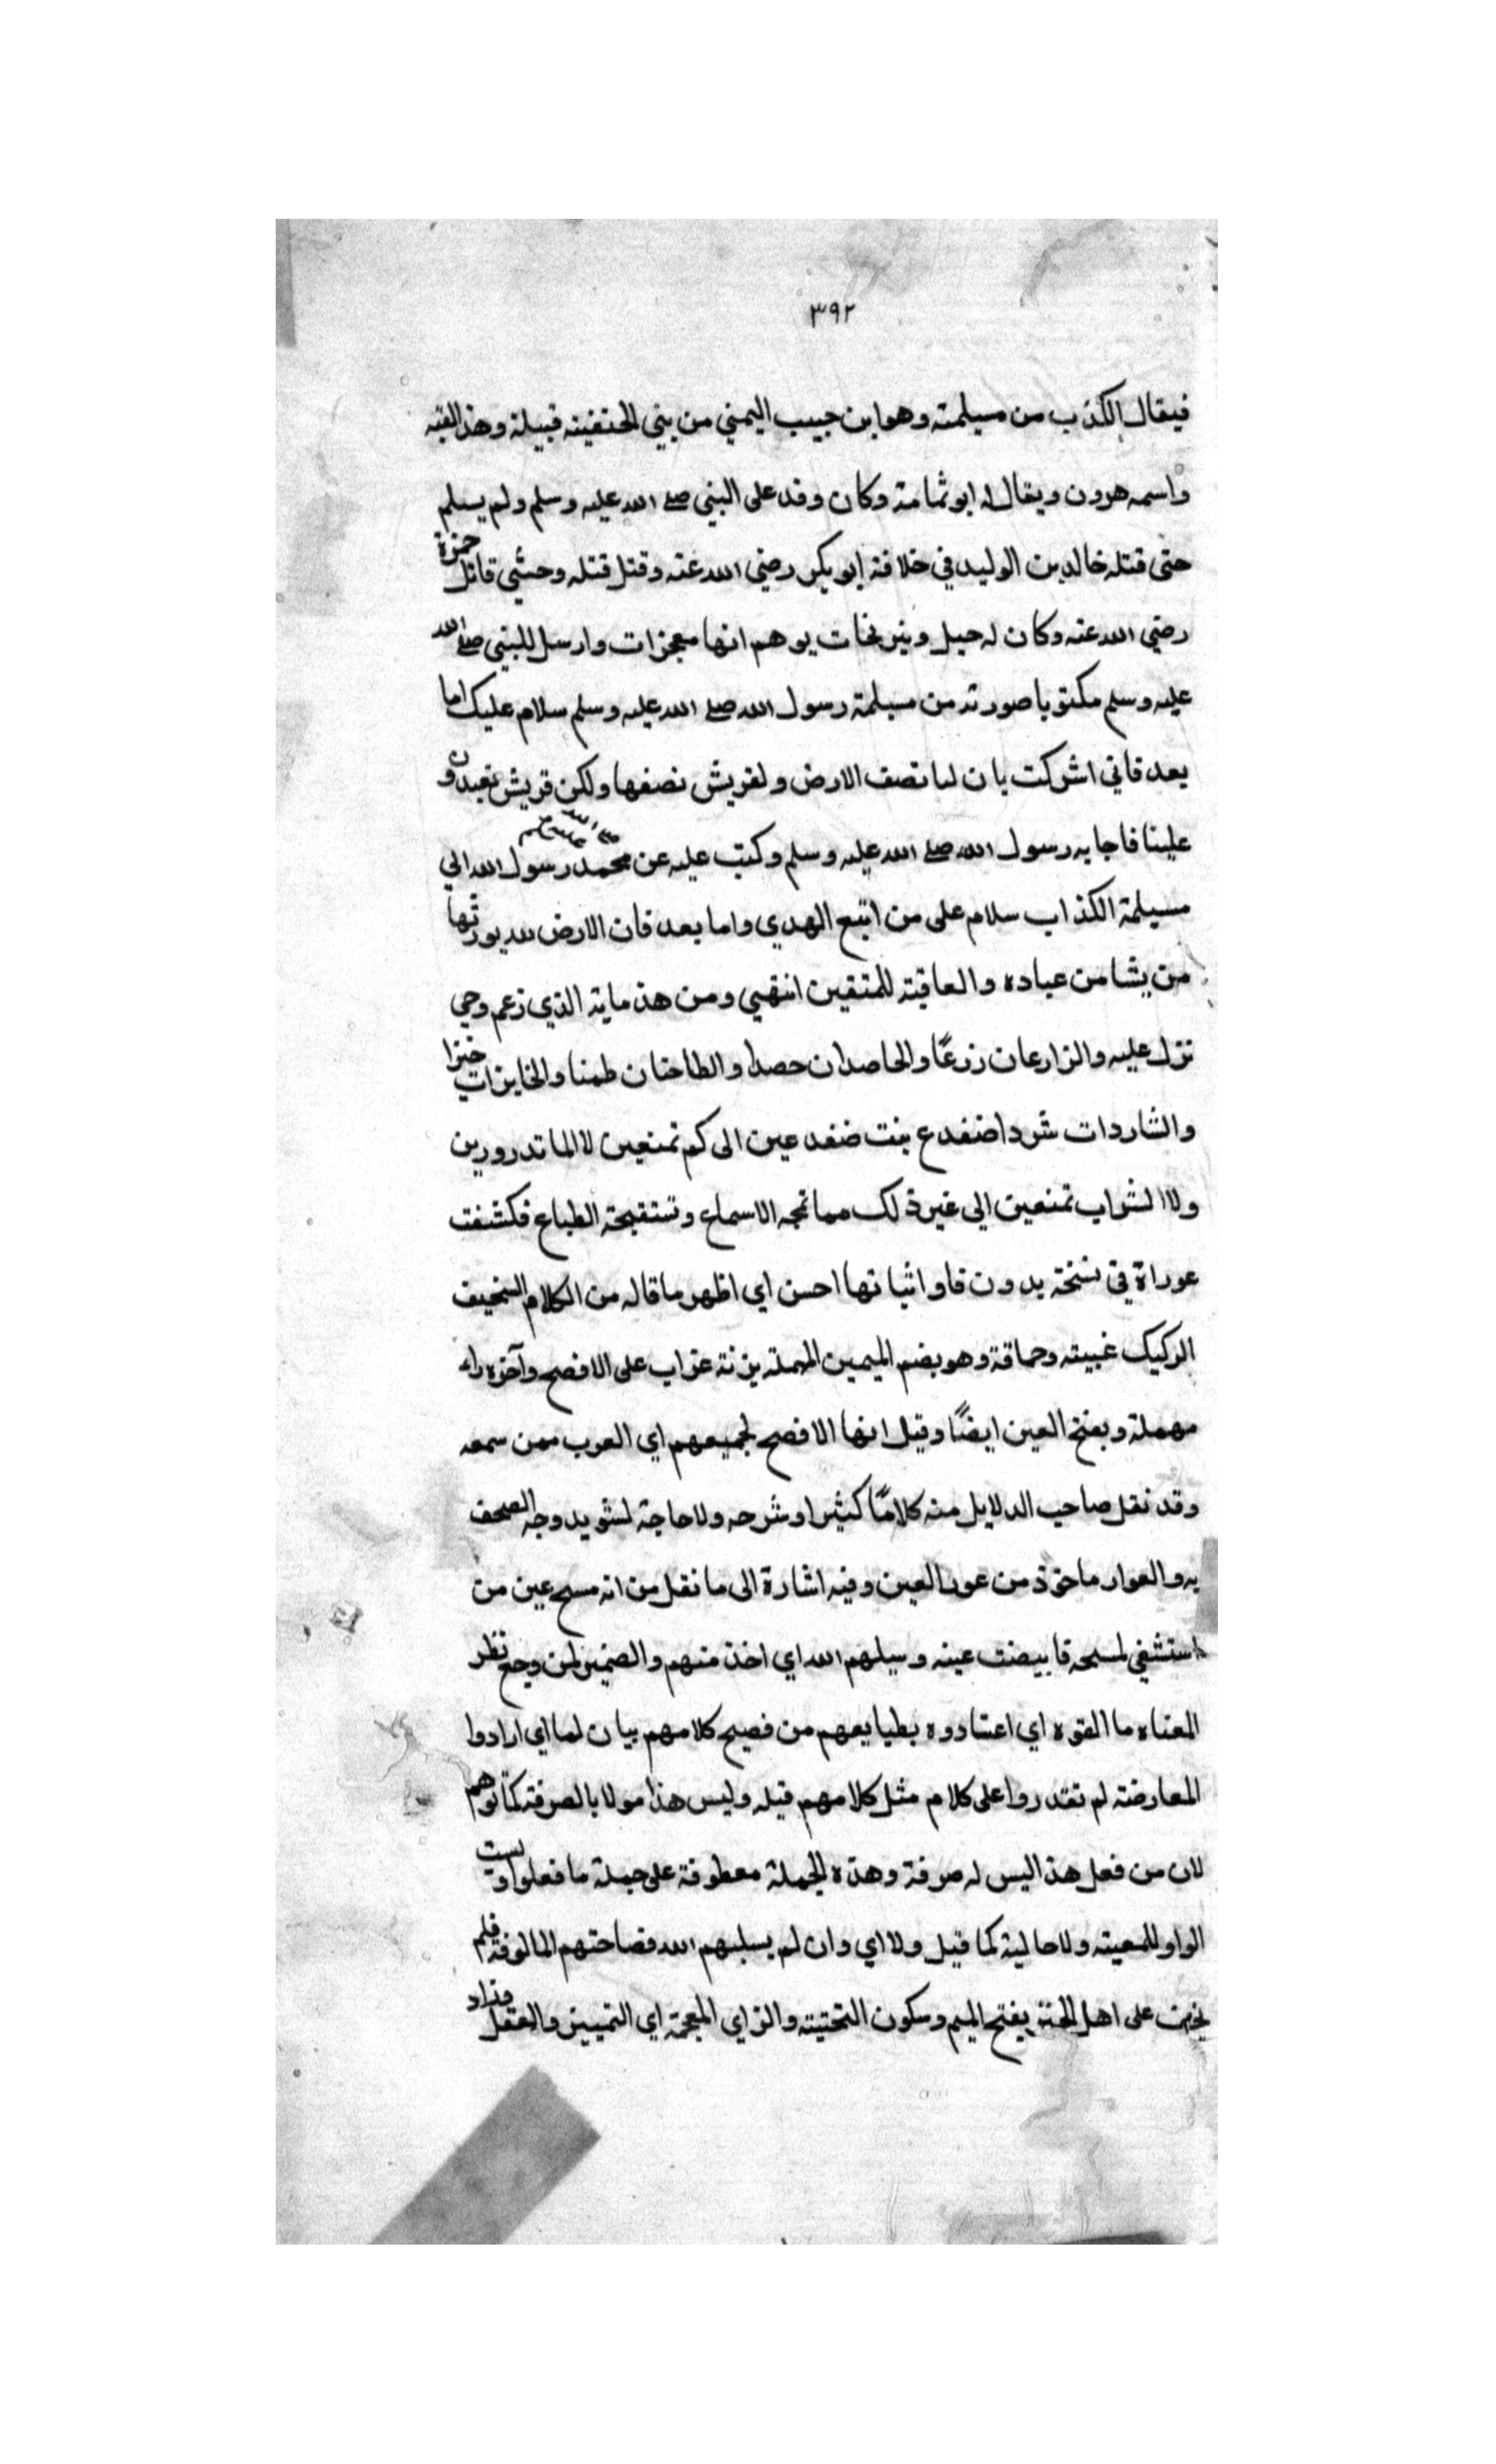 ٣٩٢
فيقال الكذب من مسيلمته وهو ابن جبيب اليمني من بني الحنفيته قبيلة وهذ القبه
واسمه هرون ويقال له ابو ثمامة وكان وفد على البني صلے الله عليه وسلم ولم يسلم
حتى قتله خالد بن الوليد في خلافة ابو بكر رضي الله عنه وقتل قتله وحشي قاتل حمزة
رضي الله عنه وكان له حيل ونير نخات يوهم انها معجزات وارسل للبني صلے الله
عليه وسلم مكتوبا صورته من مسيلمة رسول الله صلے الله عليه وسلم سلام عليك اما
بعد فاني اشركت بان لنا نصف الارض ولقريش نصفها ولكن قريش تعبدون
علينا فاجابه رسول الله صلے الله عليه وسلم وكتب عليه عن محمد رسول الله الي
مسيلمة الكذاب سلام على من اتبع الهدي واما بعد فان الارض لله يورثها
من يشا من عباده والعاقبته للمتقين انتهي ومن هذ مايته الذي زعم وحي
نزل عليه والزارعان زرعًا والحاصدان حصدا والطاحنان طمنا والخابزات خبزا
والشاردات شردا ضفدع بنت ضفدعين الى كم تمنعين لا الما تدرورين
ولا الشراب تمنعين الى غير ذلك مما تمجه الاسماع وتستقبحة الطباع فكشفت
عوراة في نسخة بدون فا واثباتها احسن اي اظهر ما قاله من الكلام السخيف
الركيك غبيته وحماقة وهو بضم الميمين المهملة بزنة عزاب على الافصح وآخره راء
مهملة وبفتح العين ايضًا وقيل انها الافصح لجميعهم اي العرب ممن سمعه
وقد نقل صاحب الدلايل منه كلامًا كثيرا وشرحه ولا حاجة لشويد وجه الصحف
به والعوار ماخوذ من عور العين وفيه اشارة الى ما نقل من انه مسح عين من
استشفي لمسحه فابيضت عينه وسيلهم الله اي اخذ منهم والضمير لمن وجع نظر
المعناه ما القوه اي اعتادوه بطبايعهم من فصيح كلامهم بيان لما اي ارادوا
المعارضة لم تقدروا على كلام مثل كلامهم قبله وليس هذا مولا بالصرفة كما توهم
لان من فعل هذ اليس له صرفة وهذه الجملة معطوفة على جملة ما فعلوا وليست
الواو للمعيته ولا حالية كما قيل ولا اي وان لم يسلبهم الله فصاحتهم المالوفة فلم
على اهل بفتح الميم وسكون التحتيته والزاي المعجمة اي التمييز والعقل